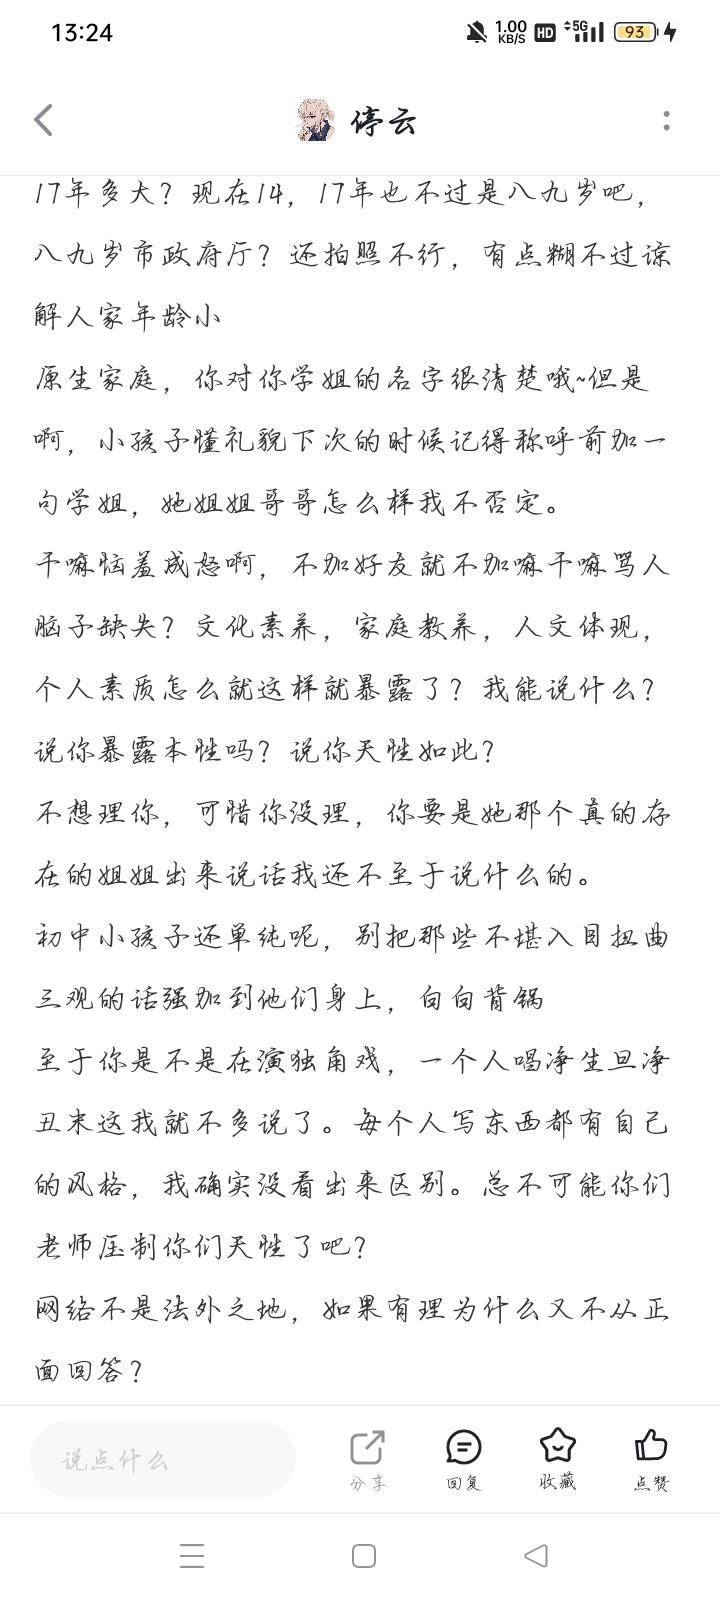 13:24
1.00
KB/S
HD
5G
93
停云
17年多大？现在14，17年也不过是八九岁吧，
八九岁市政府厅？还拍照不行，有点糊不过谅
解人家年龄小
原生家庭，你对你学姐的名字很清楚哦~但是
啊，小孩子懂礼貌下次的时候记得称呼前加一
句学姐，她姐姐哥哥怎么样我不否定。
干嘛恼羞成怒啊，不加好友就不加嘛干嘛骂人
脑子缺失？文化素养，家庭教养，人文体现，
个人素质怎么就这样就暴露了？我能说什么？
说你暴露本性吗？说你天性如此？
不想理你，可惜你没理，你要是她那个真的存
在的姐姐出来说话我还不至于说什么的。
初中小孩子还单纯呢，别把那些不堪入目扭曲
三观的话强加到他们身上，白白背锅
至于你是不是在演独角戏，一个人唱净生旦净
丑末这我就不多说了。每个人写东西都有自己
的风格，我确实没看出来区别。总不可能你们
老师压制你们天性了吧？
网络不是法外之地，如果有理为什么又不从正
面回答？
说点什么
分享
回复
收藏
点赞